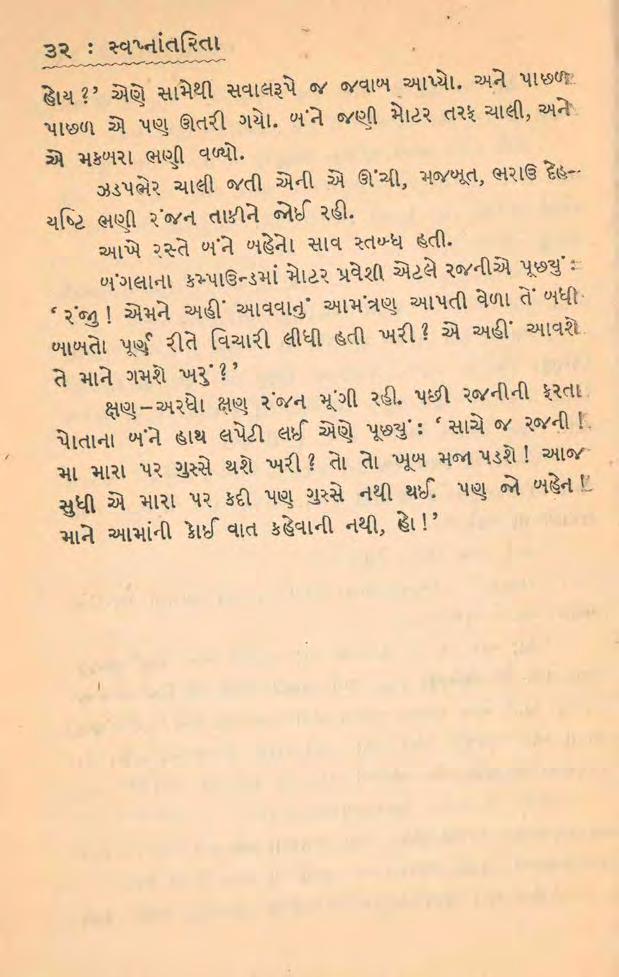 ૩૨ : સ્વપ્નાંતરિતા
હોય ?’ એણે સામેથી સવાલરૂપે જ જવાબ આપ્યો. અને પાછળ
પાછળ એ પણ ઊતરી ગયો. બંને જણી મોટર તરફ ચાલી, અને
એ મકબરા ભણી વળ્યો.
ઝડપભેર ચાલી જતી એની એ ઊંચી, મજબૂત, ભરાઉ દેહ-
યષ્ટિ ભણી રંજન તાકીને જોઈ રહી.
આખે રસ્તે બંને બહેનો સાવ સ્તબ્ધ હતી.
બંગલાના કમ્પાઉન્ડમાં મોટર પ્રવેશી એટલે રજનીએ પૂછ્યું :
‘ રંજી ! એમને અહીં આવવાનું આમંત્રણ આપતી વેળા તેં બધી
બાબતો પૂર્ણ રીતે વિચારી લીધી હતી ખરી ? એ અહીં આવશે
તે માને ગમશે ખરું ?’
ક્ષણ – અરધો ક્ષણ રંજન મૂંગી રહી. પછી રજનીની ફરતા
પોતાના બંને હાથ લપેટી લઈ એણે પૂછ્યું : ‘ સાચે જ રજની !
મા મારા પર ગુસ્સે થશે ખરી ? તો તો ખૂબ મજા પડશે ! આજ
સુધી એ મારા પર કદી પણ ગુસ્સે નથી થઈ. પણ જો બહેન !
માને આમાંની કોઈ વાત કહેવાની નથી, હો !’